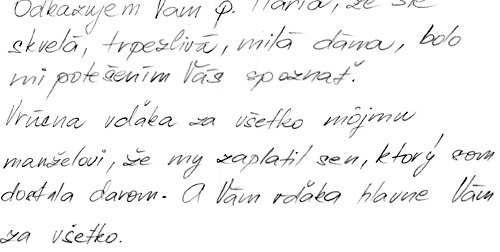 Odkazujem Vám p. Mária, že ste
skvelá, trpezlivá, milá dáma, bolo
mi potešením Vás spoznať.
Vrúcna vďaka za všetko môjmu
manželovi, že my zaplatil sen, ktorý som
dostala darom. A Vám vďaka hlavne Vám
za všetko.